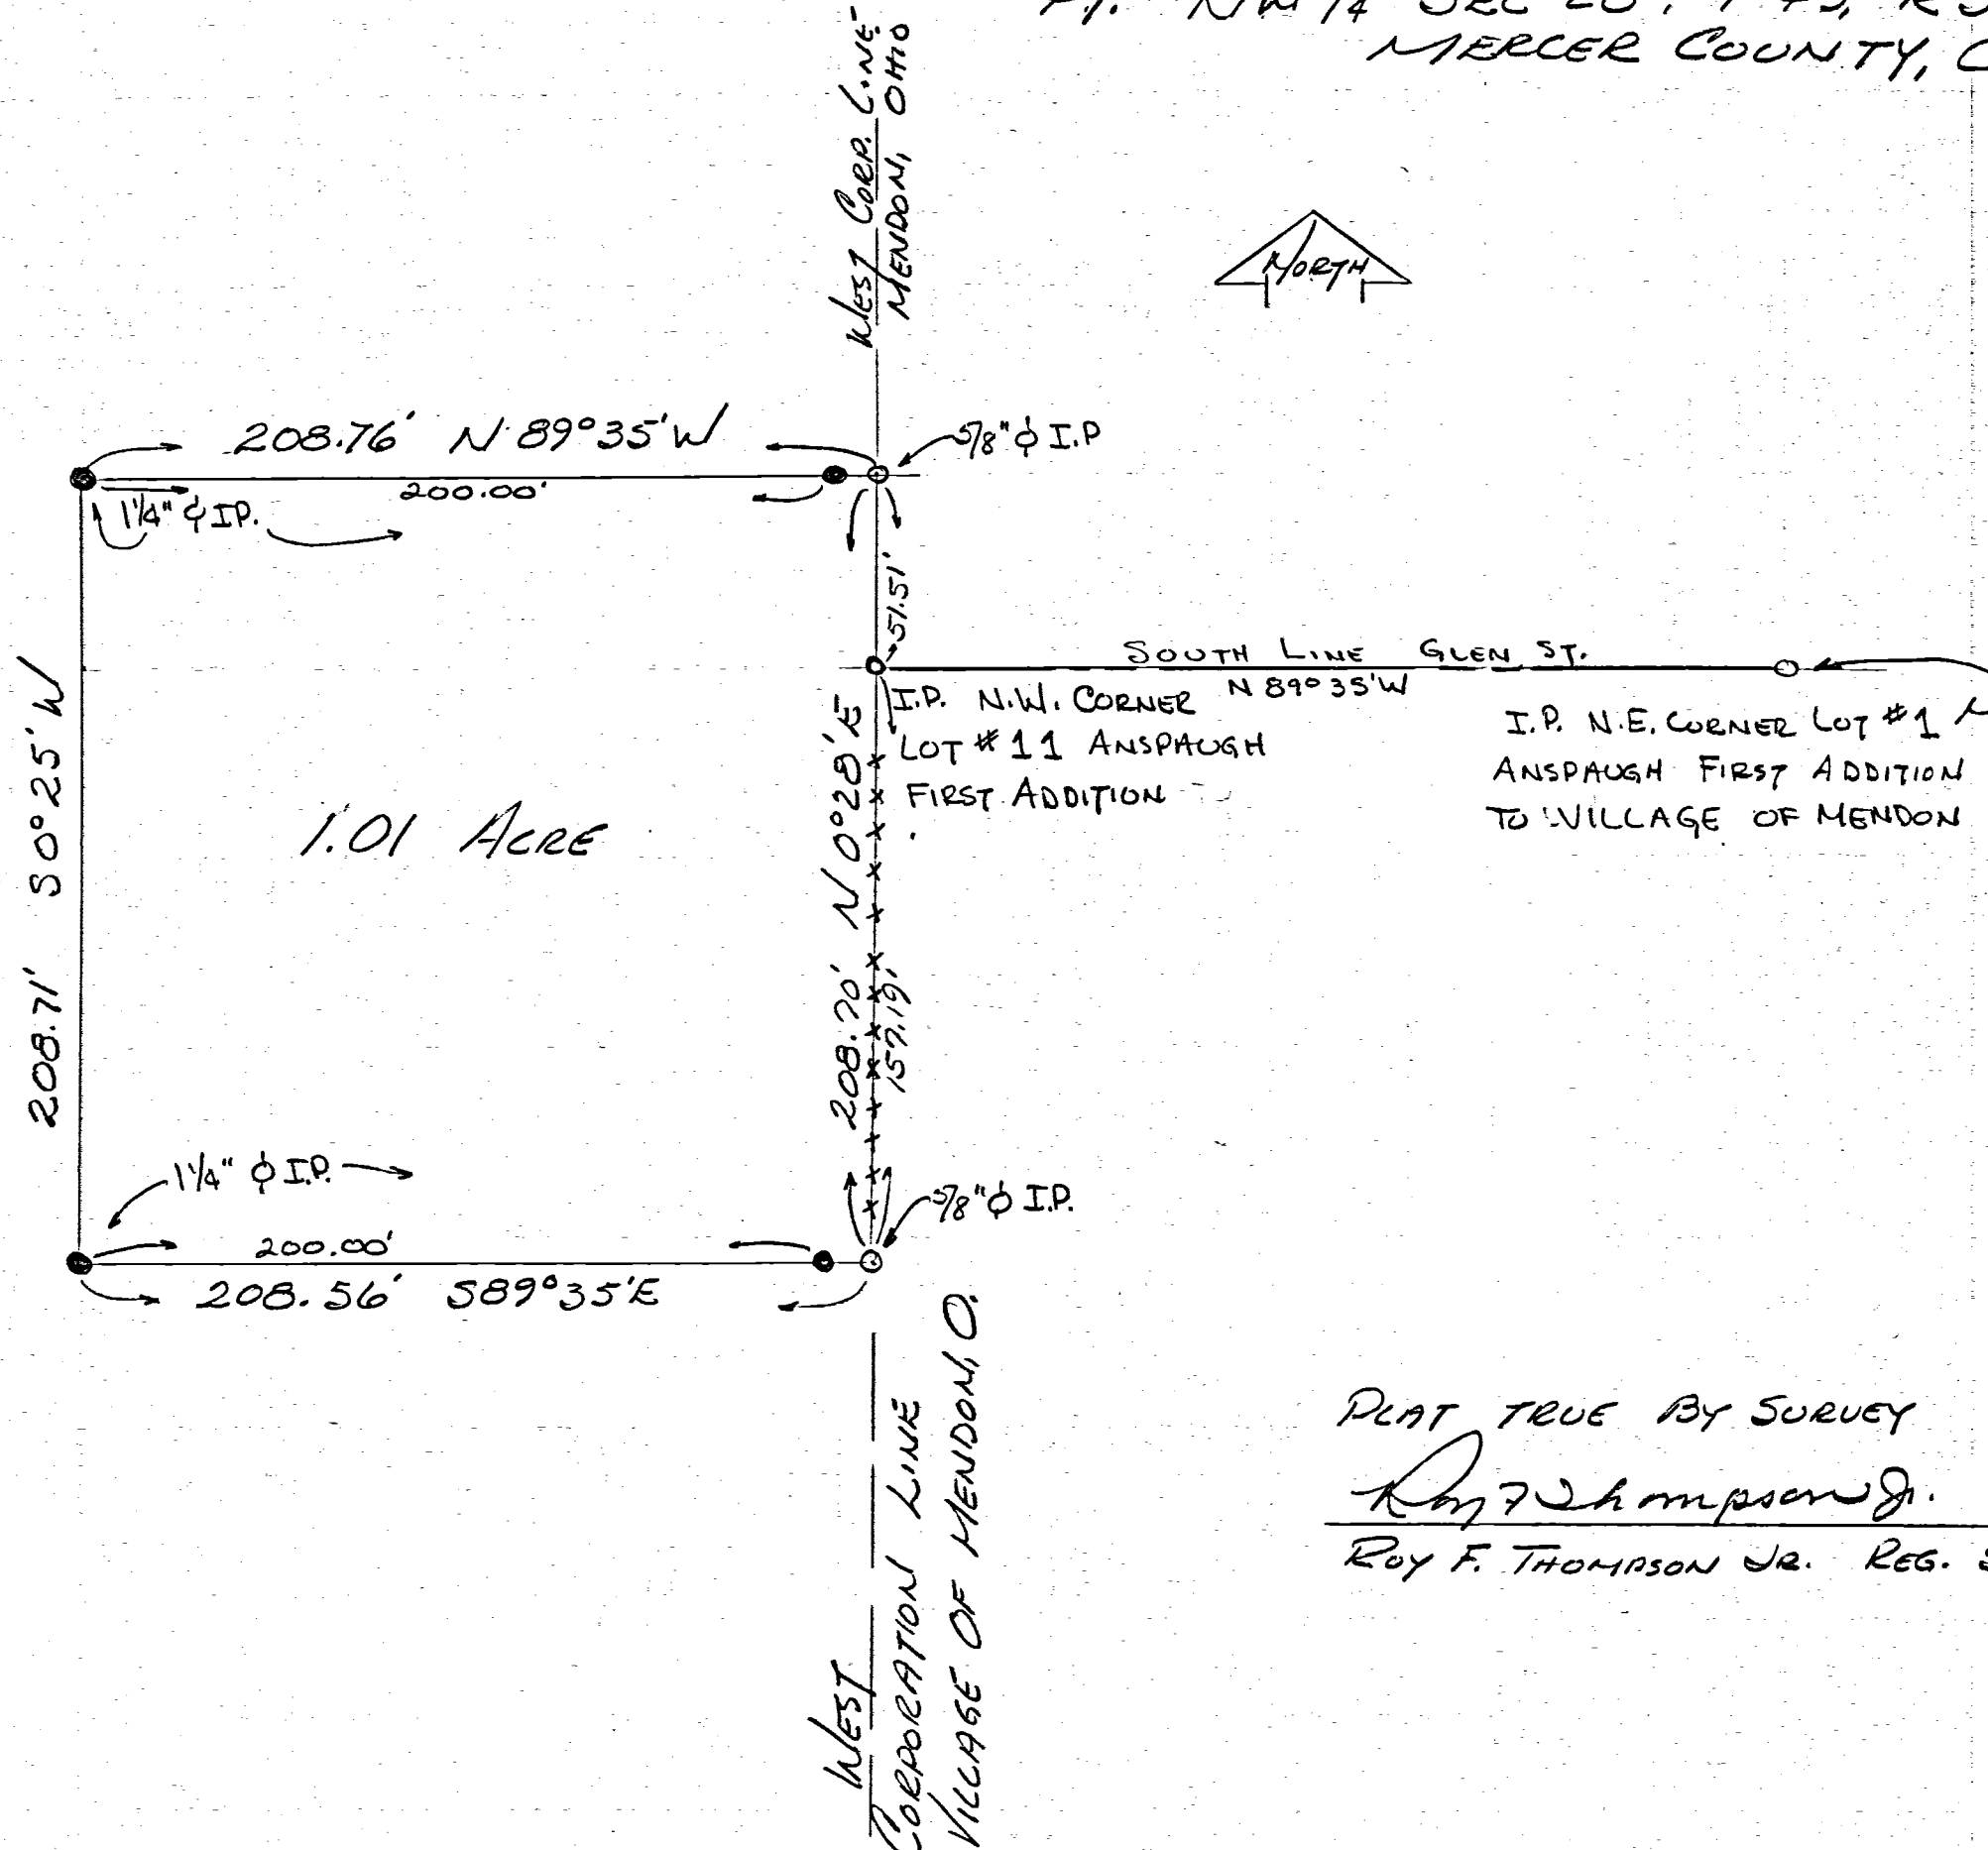 NW 1/4 SEC
MERCER COUNTY,
WEST CORP. LINE
MENDON, OHIO
NORTH
208.76' N 89°35'W
5/8"φ I.P
200.00'
1 1/4" φ I.P.
51.51'
SOUTH LINE GLEN ST.
N 89°35'W
I.P. N.W. CORNER
LOT #11 ANSPAUGH
FIRST ADDITION
I.P. N.E. CORNER LOT #1
ANSPAUGH FIRST ADDITION
TO VILLAGE OF MENDON
208.71' S 0°25' W
1.01 ACRE
208.70' N 0°28'E
157.19'
1 1/4" φ I.P.
5/8"φ I.P.
200.00'
208.56' S89°35'E
WEST
CORPORATION LINE
VILLAGE OF MENDON, O.
PLAT TRUE BY SURVEY
Roy F Thompson Jr.
ROY F. THOMPSON JR. REG.